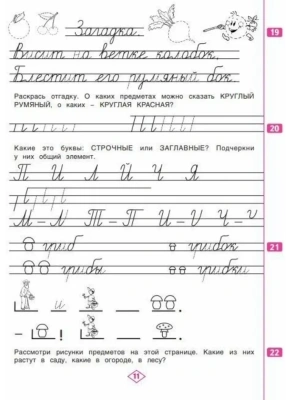 Загадка.
19
Висит на ветке колобок,
Блестит его румяный бок.
Раскрась отгадку. О каких предметах можно сказать КРУГЛЫЙ
РУМЯНЫЙ, о каких – КРУГЛАЯ КРАСНАЯ?
20
Какие это буквы: СТРОЧНЫЕ или ЗАГЛАВНЫЕ? Подчеркни
у них общий элемент.
П И Л Й Ч Я
М – М Т – П И – И Ч – Ч
21
гриб грибок
грибы грибки
и
– ! !
Рассмотри рисунки предметов на этой странице. Какие из них
растут в саду, какие в огороде, в лесу?
22
11